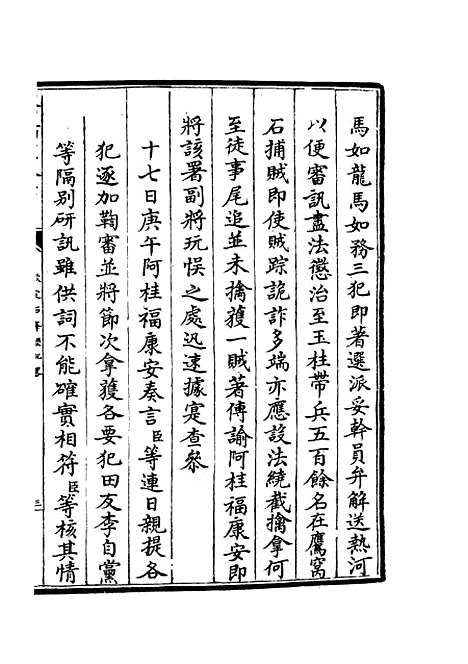 馬如龍馬如務三犯即著選派妥幹員弁解送熱河
以便審訊盡法懲治至玉柱帶兵五百餘名在鷹窩
石捕賊即使賊踪詭詐多端亦應設法繞截擒拿何
至徒事尾追並未擒獲一賊著傳諭阿桂福康安即
將該署副將玩悮之處迅速據寔查參
十七日庚午阿桂福康安奏言臣等連日親提各
犯逐加鞠審並將節次拿獲各要犯田友李自黨
等隔別研訊雖供詞不能確實相符臣等核其情